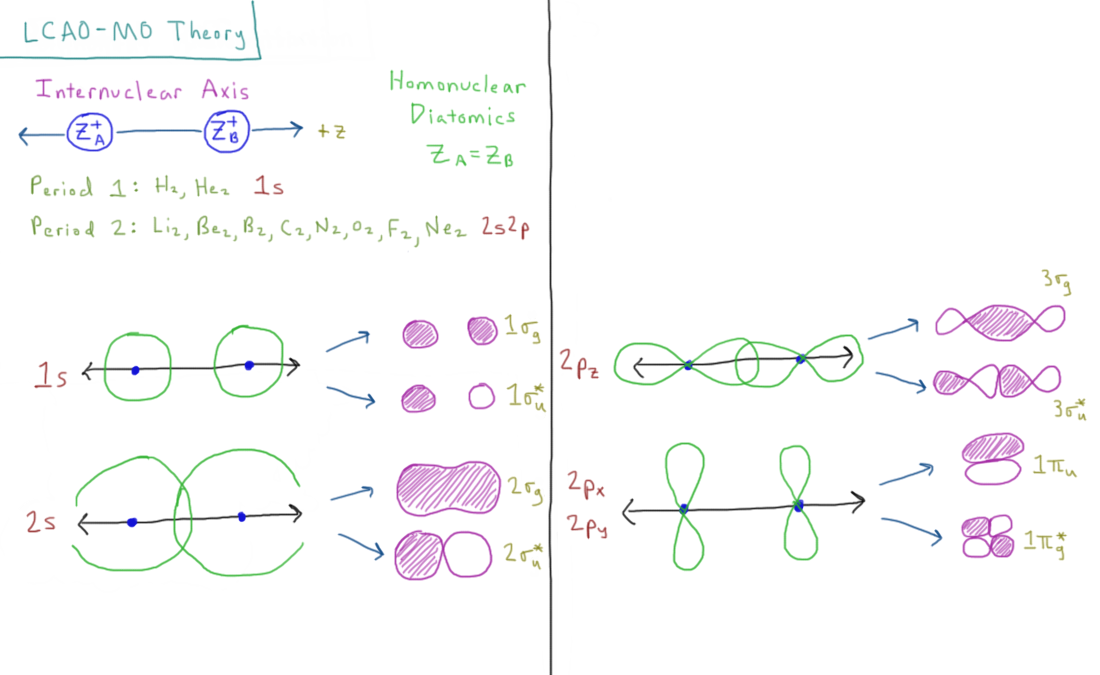 LCAO-MO Theory
Internuclear Axis
Z_A^+ Z_B^+ +z
Homonuclear
Diatomics
Z_A=Z_B
Period 1: H₂, He₂ 1s
Period 2: Li₂, Be₂, B₂, C₂, N₂, O₂, F₂, Ne₂ 2s2p
1s
1σ_g
1σ_u^*
2s
2σ_g
2σ_u^*
2p_z
3σ_g
3σ_u^*
2p_x
2p_y
1π_u
1π_g^*